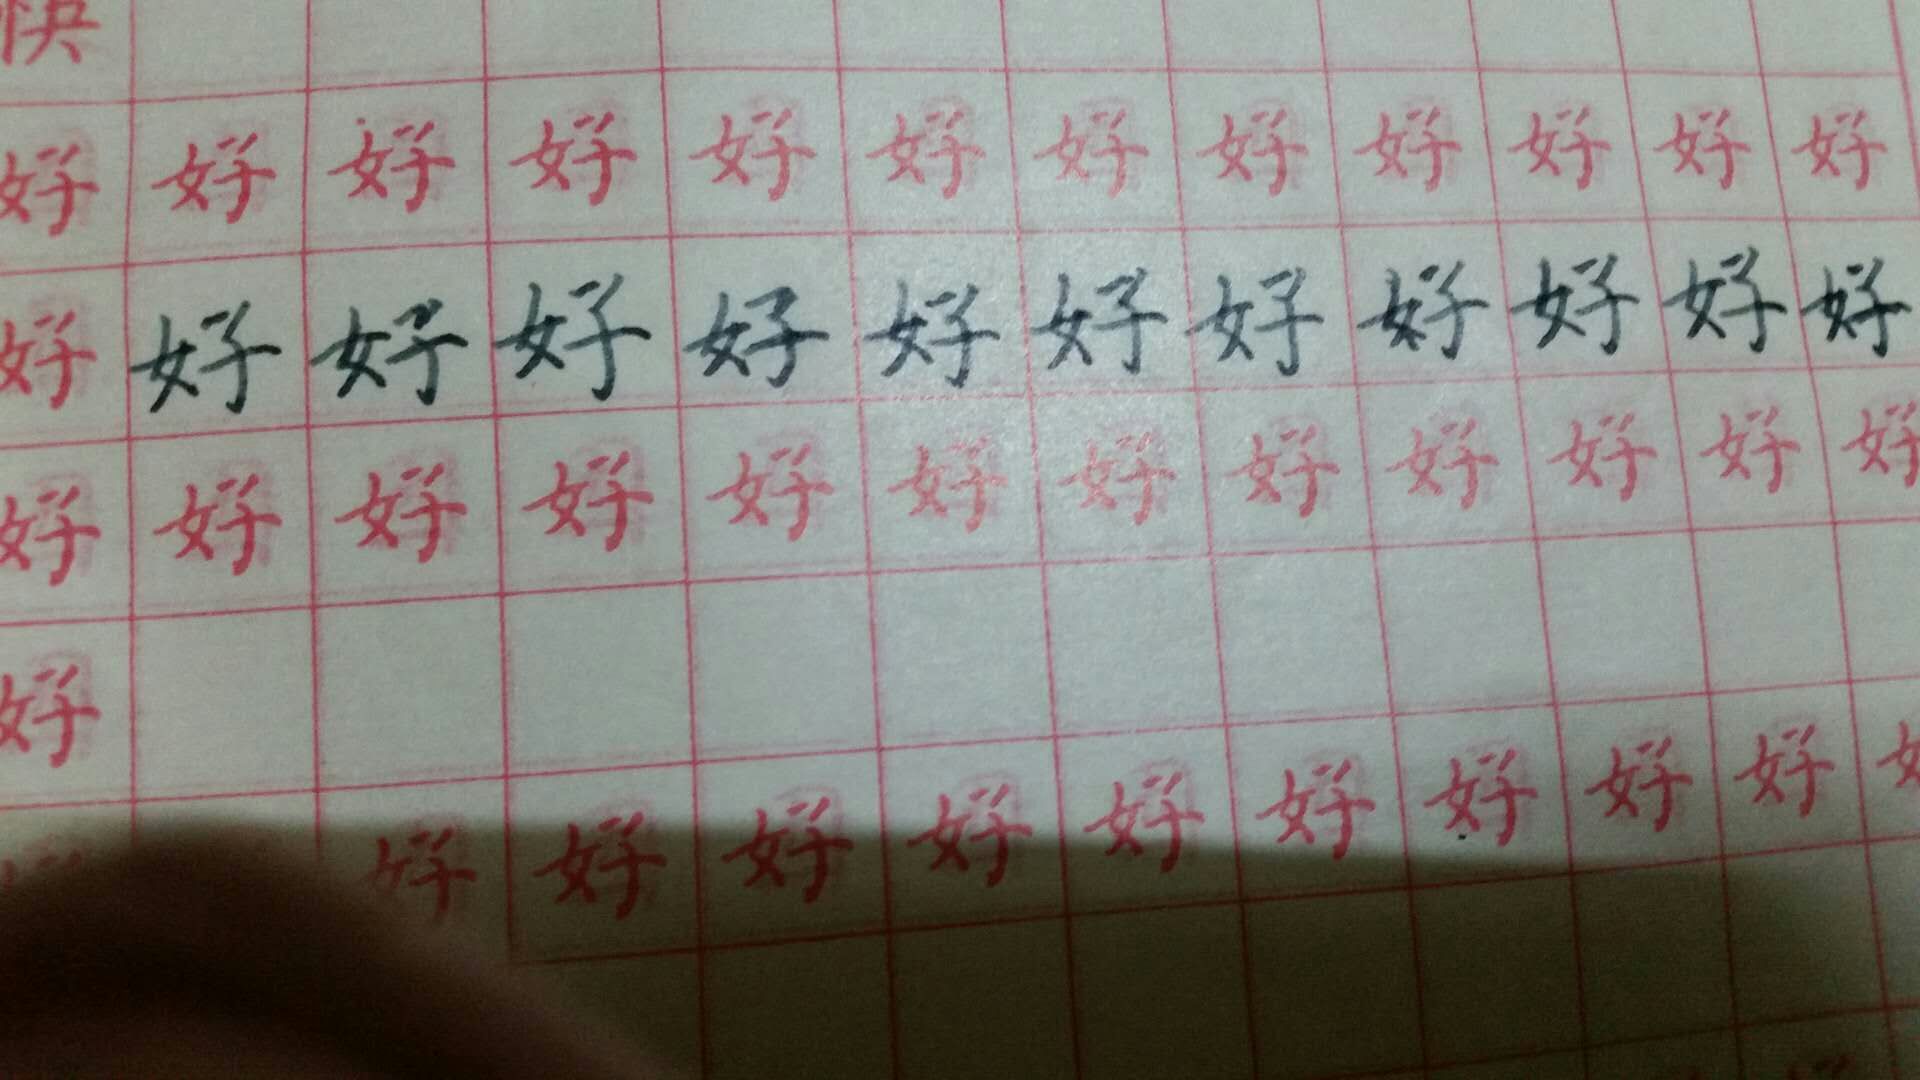 快
好好好好好好好好好好好好
好好好好好好好好好好好好
好好好好好好好好好好好好
好
好好好好好好好好好